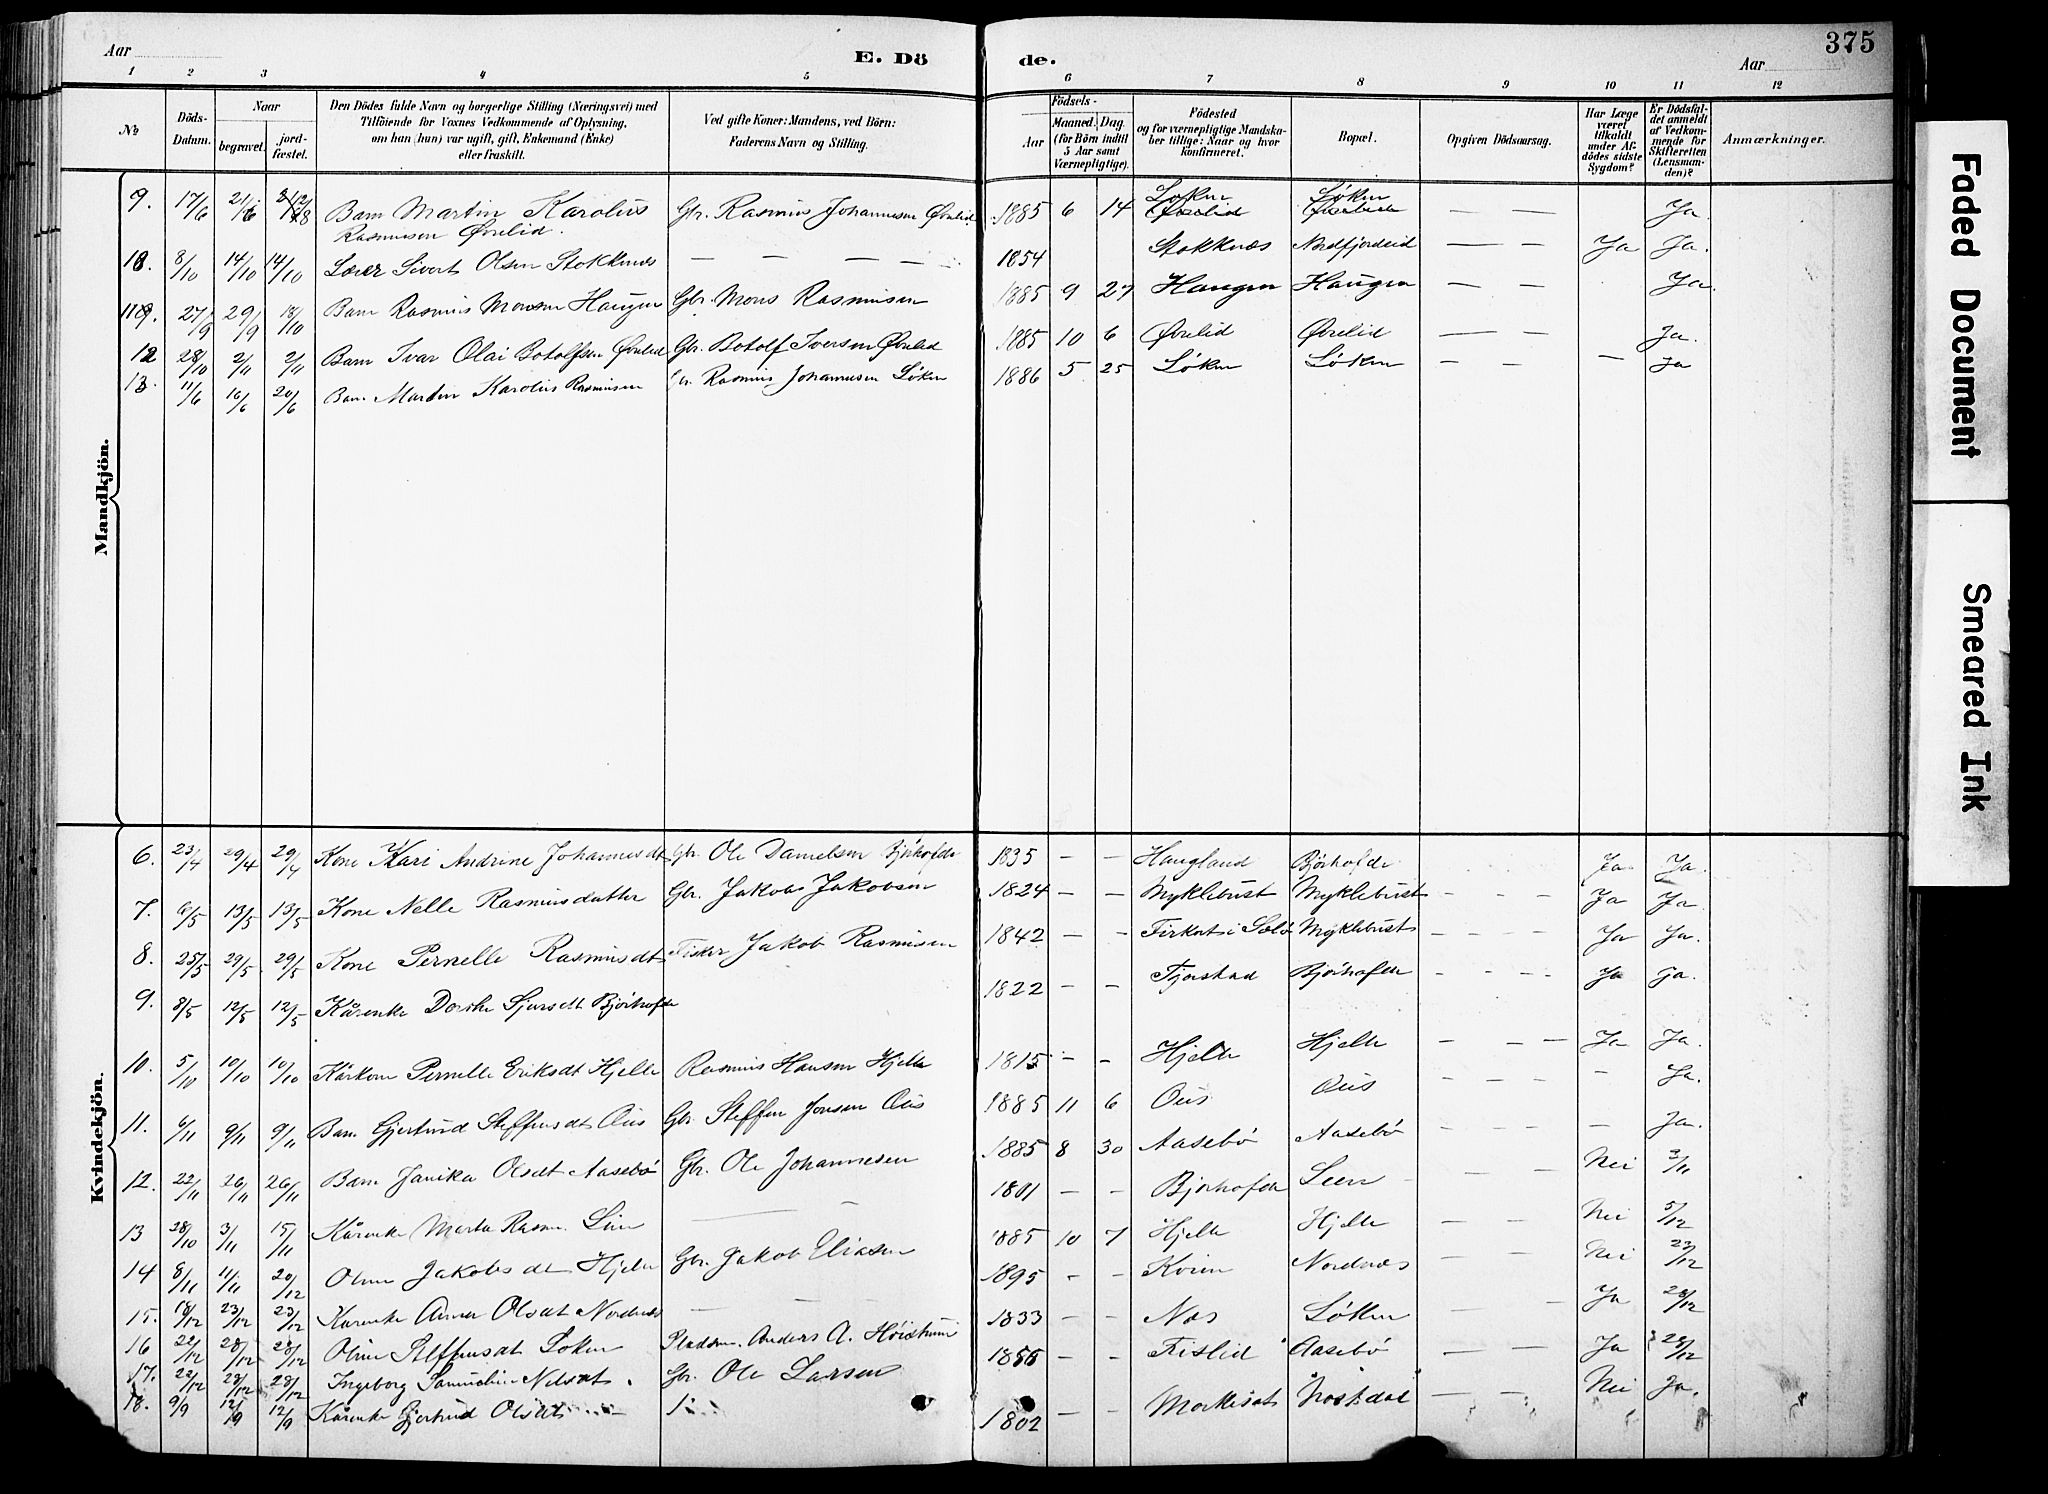 Aar
E. Dö
de.
Aar
375
1 2 3 4 5 6 7 8 9 10 11 12
№
Döds-
Datum.
Naar
begravet.
jord-
fæstet.
Den Dödes fulde Navn og borgerlige Stilling (Næringsvei) med
Tilföiende for Voxnes Vedkommende af Oplysning,
om han (hun) var ugift, gift, Enkemand (Enke)
eller fraskilt.
Ved gifte Koner: Mandens, ved Börn:
Faderens Navn og Stilling.
Födsels-
Aar
Maaned. Dag.
(for Börn indtil
5 Aar samt
Værnepligtige).
Födested
og for værnepligtige Mandska-
ber tillige: Naar og hvor
konfirmeret.
Bopæl.
Opgiven Dödsaarsag.
Har Læge
været
tilkaldt
under Af-
dödes sidste
Sygdom?
Er Dödsfal-
det anmeldt
af Vedkom-
mende for
Skifteretten
(Lensman-
den)?
Anmærkninger.
Mandkjön.
9. 17/6 21/6 Barn Martin Karolus Gbr. Rasmus Johannesen Øvrelid 1885 6 14 Løken Løken — — Ja.
Rasmusen Øvrelid. Øvrelid Øvrelid
10. 8/10 14/10 14/10 Lærer Sivert Olsen Stokknes — — — — 1854 Stokknæs Nordfjordeid — — Ja Ja.
11. 27/9 29/9 18/10 Barn Rasmus Monsen Haugen Gbr. Mons Rasmusen 1885 9 27 Haugen Haugen — — Ja.
12 28/10 2/11 2/11 Barn Ivar Olai Botolfsen Øvrelid Gbr. Botolf Iversen Øvrelid 1885 10 6 Øvrelid Øvrelid — — Ja.
13. 11/6 16/6 20/6 Barn Martin Karolus Rasmusen Gbr. Rasmus Johannesen Løken 1886 5 25 Løken Løken — — — Ja
Kvindekjön.
6. 23/4 29/4 29/4 Kone Kari Andrine Johannesdt Gbr. Ole Danielsen Bjørhofde 1835 — — Haugland Bjørhofde Ja. Ja.
7. 6/5 13/5 13/5 Kone Nelle Rasmusdatter Gbr. Jakob Jakobsen 1824 — — Myklebust Myklebust Ja Ja.
8. 25/5 29/5 29/5 Kone Pernelle Rasmusdt Fisker Jakob Rasmusen 1842 — — i Selø Myklebust Ja Ja.
9. 8/5 12/5 12/5 Kårenke Dorthe Sjursdt Bjørhofde 1822 — — Fjorstad Bjørhofde Ja ja.
10. 5/10 10/10 10/10 Kårkone Pernelle Eriksdt Hjelle Rasmus Hansen Hjelle 1815 — — Hjelle Hjelle — — — Ja Ja.
11. 6/11 9/11 9/11 Barn Gjertrud Steffensdt Ous Gbr. Steffen Jonsen Ous 1885 11 6 Ous Ous — Ja.
12. 22/11 26/11 26/11 Barn Janika Olsdt Aasebø Gbr. Ole Johannesen 1885 8 30 Aasebø Aasebø — Ja.
13 28/10 3/11 15/11 Kårenke Marta Rasm. — 1801 — — Bjørhofde Leen Nei 3/11
14 8/11 11/11 20/12 Oline Jakobsdt Hjelle Gbr. Jakob Eliasen 1885 10 7 Hjelle Hjelle Nei 5/12
15. 18/12 23/12 23/12 Kårenke Anna Olsdt Nordnes — — — 1895 — — Nordnæs Nei 23/12
16 22/12 28/12 28/12 Oline Steffensdt Løken Pladsm. Anders A. 1833 — — Nes Løken Ja 28/12
17. 22/12 28/12 28/12 Ingeborg Nilsdt. Gbr. Ole Larsen — — Aasebø — — Ja 28/12
18. 9/9 12/9 12/9 Kårenke Gjertrud Olsdt 1802 — — Nei Ja.
Faded Document
Smeared Ink